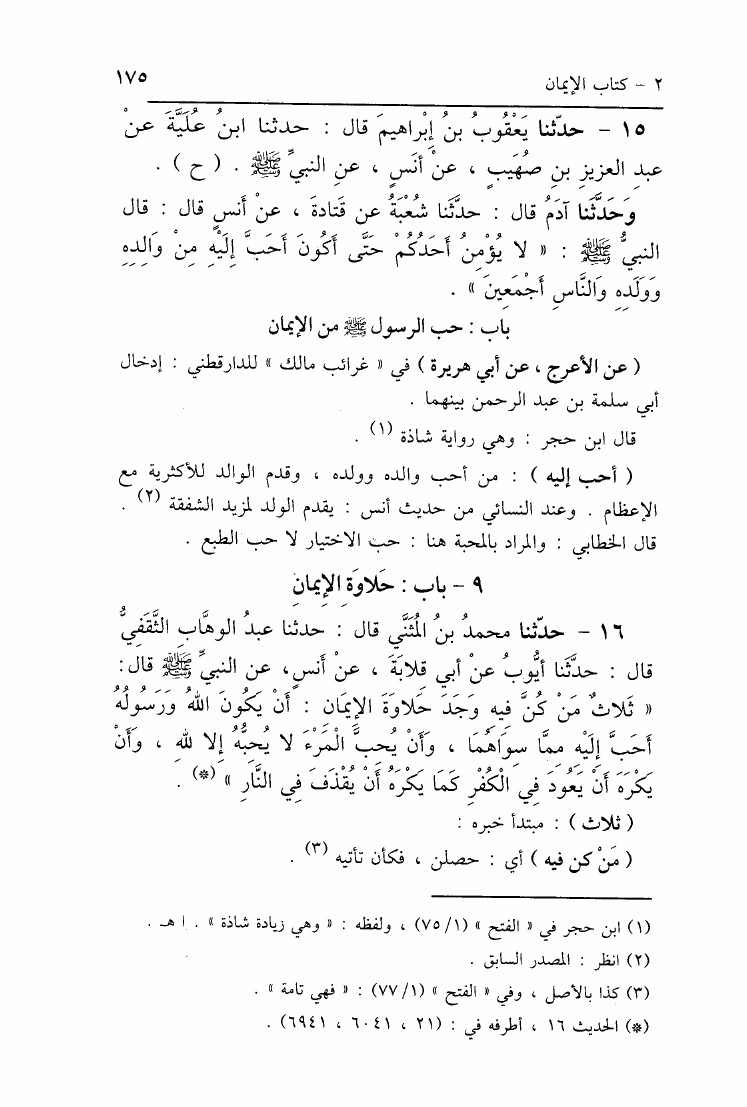 ٢ - كتاب الإيمان ١٧٥
١٥ - حدّثنا يَعْقُوبُ بنُ إِبْراهيمَ قال : حدثنا ابنُ عُلَيَّةَ عنْ
عبد العزيزِ بنِ صُهَيبٍ ، عنْ أنَسٍ ، عنِ النبيِّ ﷺ . ( ح ) .
وَحَدَّثَنا آدَمُ قال : حدَّثَنا شُعْبَةُ عن قَتادَةَ ، عنْ أنَسٍ قال : قال
النبيُّ ﷺ : « لا يُؤْمِنُ أَحَدُكُمْ حَتَّى أَكُونَ أَحَبَّ إِلَيْهِ مِنْ وَالِدِهِ
وَوَلَدِهِ وَالنَّاسِ أَجْمَعِينَ » .
باب : حب الرسول ﷺ من الإيمان
( عن الأعرج ، عن أبي هريرة ) في « غرائب مالك » للدارقطني : إدخال
أبي سلمة بن عبد الرحمن بينهما .
قال ابن حجر : وهي رواية شاذة (١) .
( أحب إليه ) : من أحب والده وولده ، وقدم الوالد للأكثرية مع
الإعظام . وعند النسائي من حديث أنس : يقدم الولد لمزيد الشفقة (٢) .
قال الخطابي : والمراد بالمحبة هنا : حب الاختيار لا حب الطبع .
٩ - باب : حَلاوَةِ الإِيمَانِ
١٦ - حدّثنا محمدُ بنُ المُثَنَّي قال : حدثنا عبدُ الوهَّابِ الثَّقَفِيُّ
قال : حدَّثَنا أيُّوبُ عنْ أبي قِلابَةَ ، عنْ أنَسٍ، عن النبيِّ ﷺ قال:
« ثَلاثٌ مَنْ كُنَّ فيه وَجَدَ حَلاوَةَ الإيمَانِ : أَنْ يَكُونَ اللهُ وَرَسُولُهُ
أحَبَّ إلَيْهِ مِمَّا سِوَاهُمَا ، وَأنْ يُحِبَّ الْمَرْءَ لا يُحِبُّهُ إلا للهِ ، وَأنْ
يَكْرَهَ أَنْ يَعُودَ فِي الْكُفْرِ كَمَا يَكْرَهُ أَنْ يُقْذَفَ فِي النَّارِ » (*) .
( ثلاث ) : مبتدأ خبره :
( مَنْ كن فيه ) أي : حصلن ، فكأن تأتيه (٣) .
(١) ابن حجر في « الفتح » (٧٥/١) ، ولفظه : « وهي زيادة شاذة » . ا هـ .
(٢) انظر : المصدر السابق .
(٣) كذا بالأصل ، وفي « الفتح » (٧٧/١) : « فهي تامة » .
(*) الحديث ١٦ ، أطرفه في : (٢١ ، ٦٠٤١ ، ٦٩٤١) .